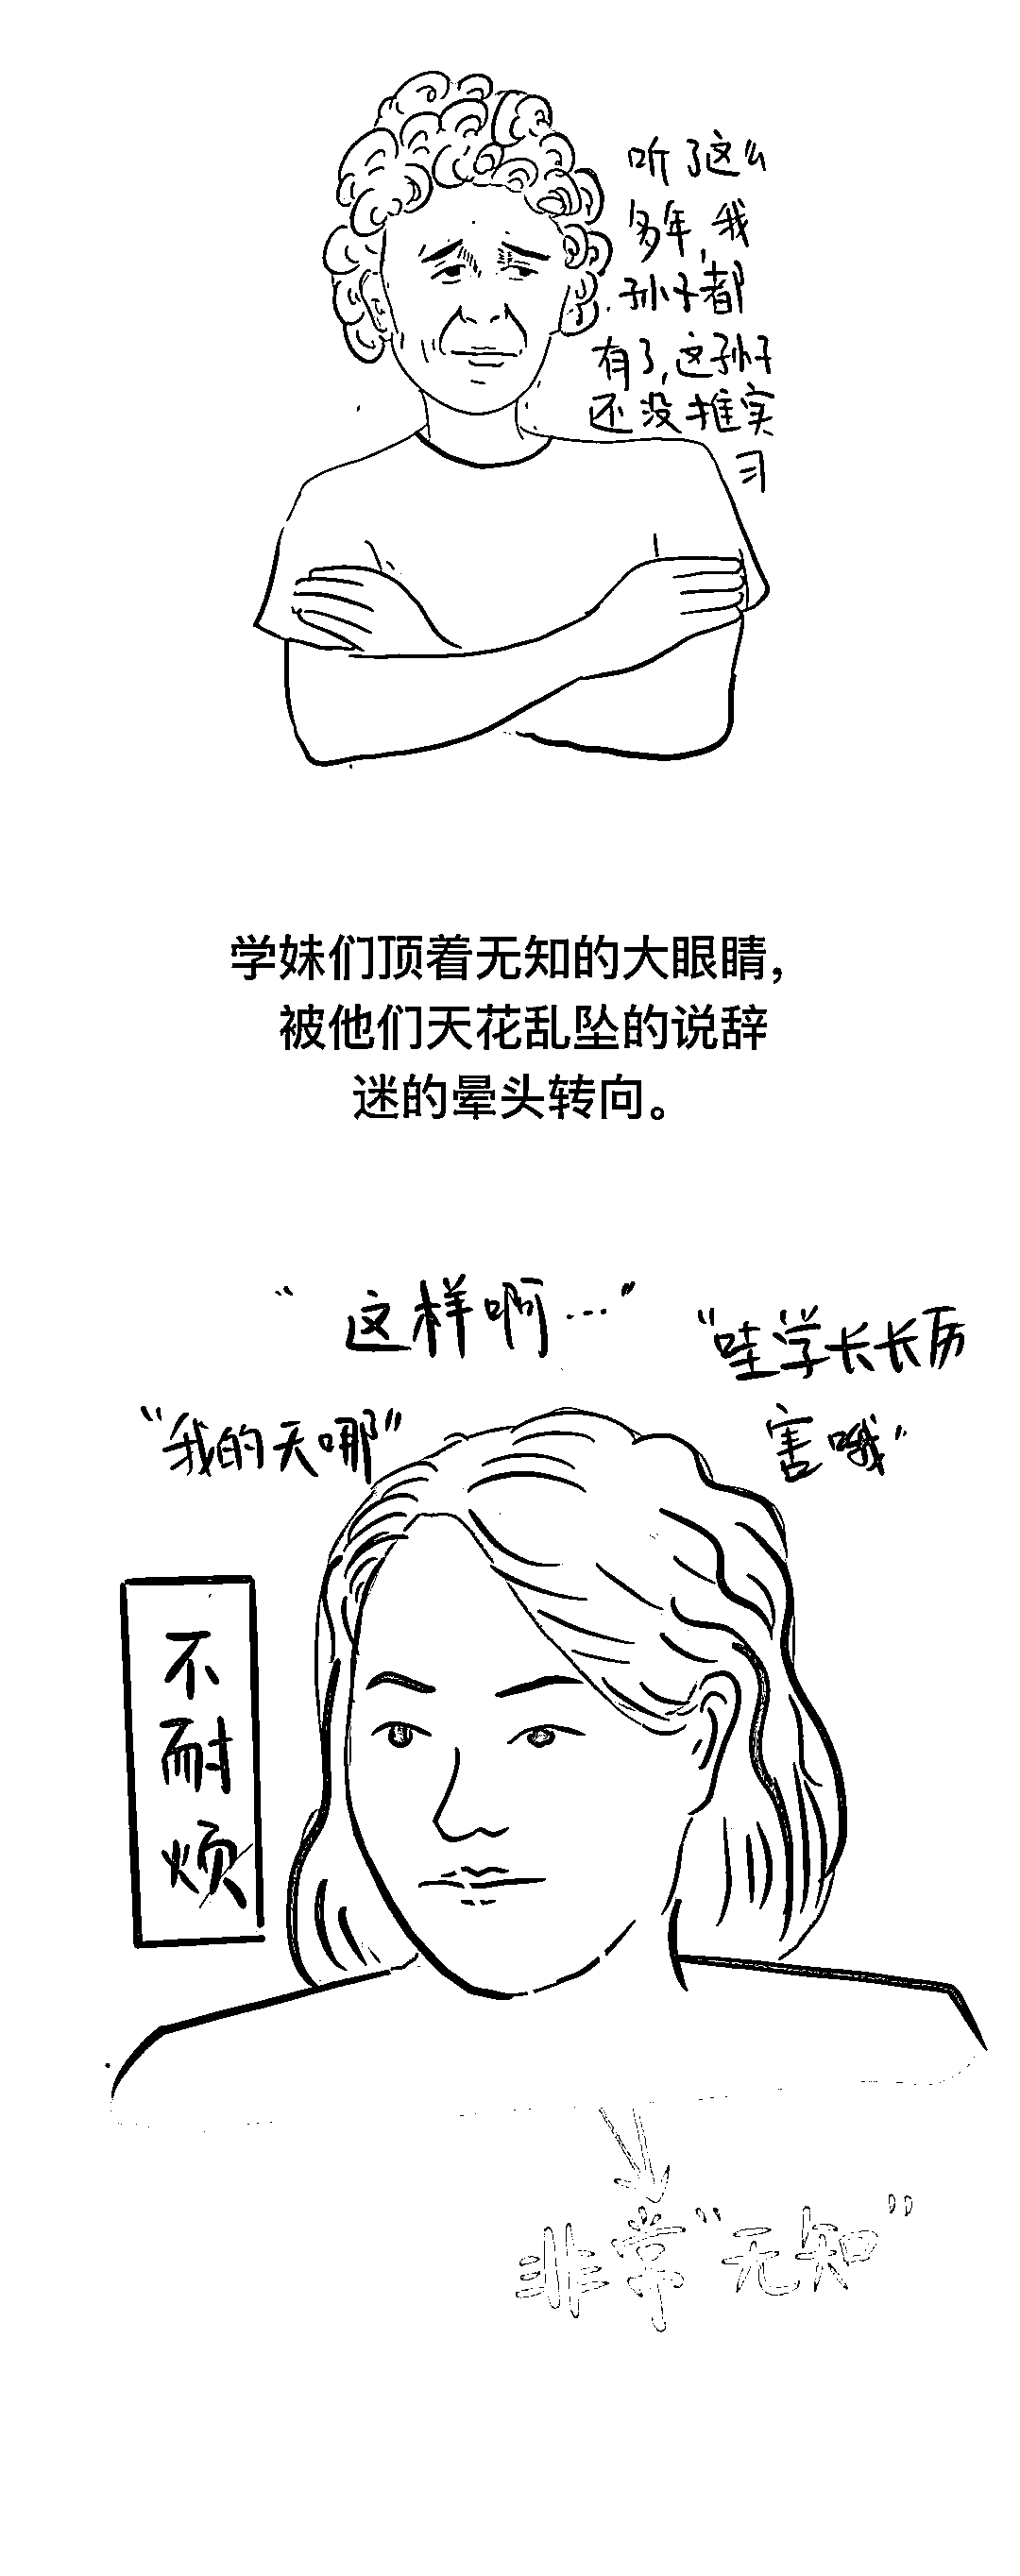 听了这么
多年,我
孙子都
有了,这孙子
还没推实
习
学妹们顶着无知的大眼睛,
被他们天花乱坠的说辞
迷的晕头转向。
“这样啊…”
“哇学长长厉
害哦”
“我的天哪”
不
耐
烦
非常“无知”